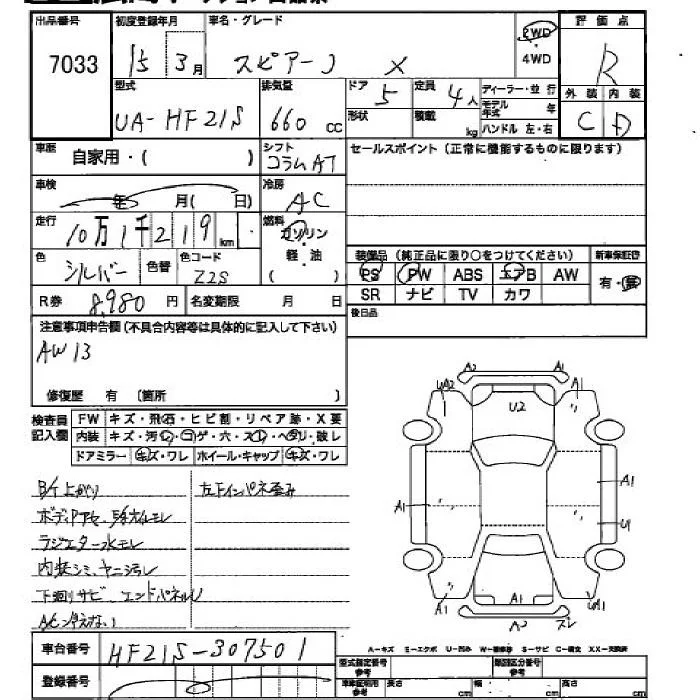 出品番号 初度登録年月 車名・グレード 2WD 評価点
7033 15年 3月 スピアーノ X 4WD R
型式 排気量 ドア 定員 ディーラー・並行 外装 内装
UA-HF21S 660cc 5 4人 モデル年式 年
形状 積載 kg ハンドル 左・右 C D
車歴 自家用・( ) シフト コラムAT セールスポイント(正常に機能するものに限ります)
車検 年 月( 日) 冷房 AC
走行 10万1千219km 燃料 ガソリン
軽・油
( )
色 シルバー 色替 色コード Z2S
装備品(純正品に限り○をつけてください) 新車保証書
PS PW ABS エアB AW 有・無
SR ナビ TV カワ
R券 8,980円 名変期限 月 日
後日品
注意事項申告欄(不具合内容等は具体的に記入して下さい)
AW13
修復歴 有 (箇所 )
検査員記入欄
FW キズ・飛石・ヒビ割・リペア跡・X要
内装 キズ・汚レ・コゲ・穴・スレ・ヘタリ・破レ
ドアミラー キズ・ワレ ホイール・キャップ キズ・ワレ
左下インパネ歪み
ラジエター水モレ
内装シミ、ヤニ汚レ
下廻りサビ
A2 A1
UA2 A1
U2
A1 A1
U1
A1 A1 U1
A2 スレ
A-キズ E-エクボ U-凹み W-補修跡 S-サビ C-腐食 XX-交換済
車台番号 HF21S-307501
登録番号
型式指定番号 参考 類別区分番号 参考
車庫証明用 参考 長さ cm 幅 cm 高さ cm